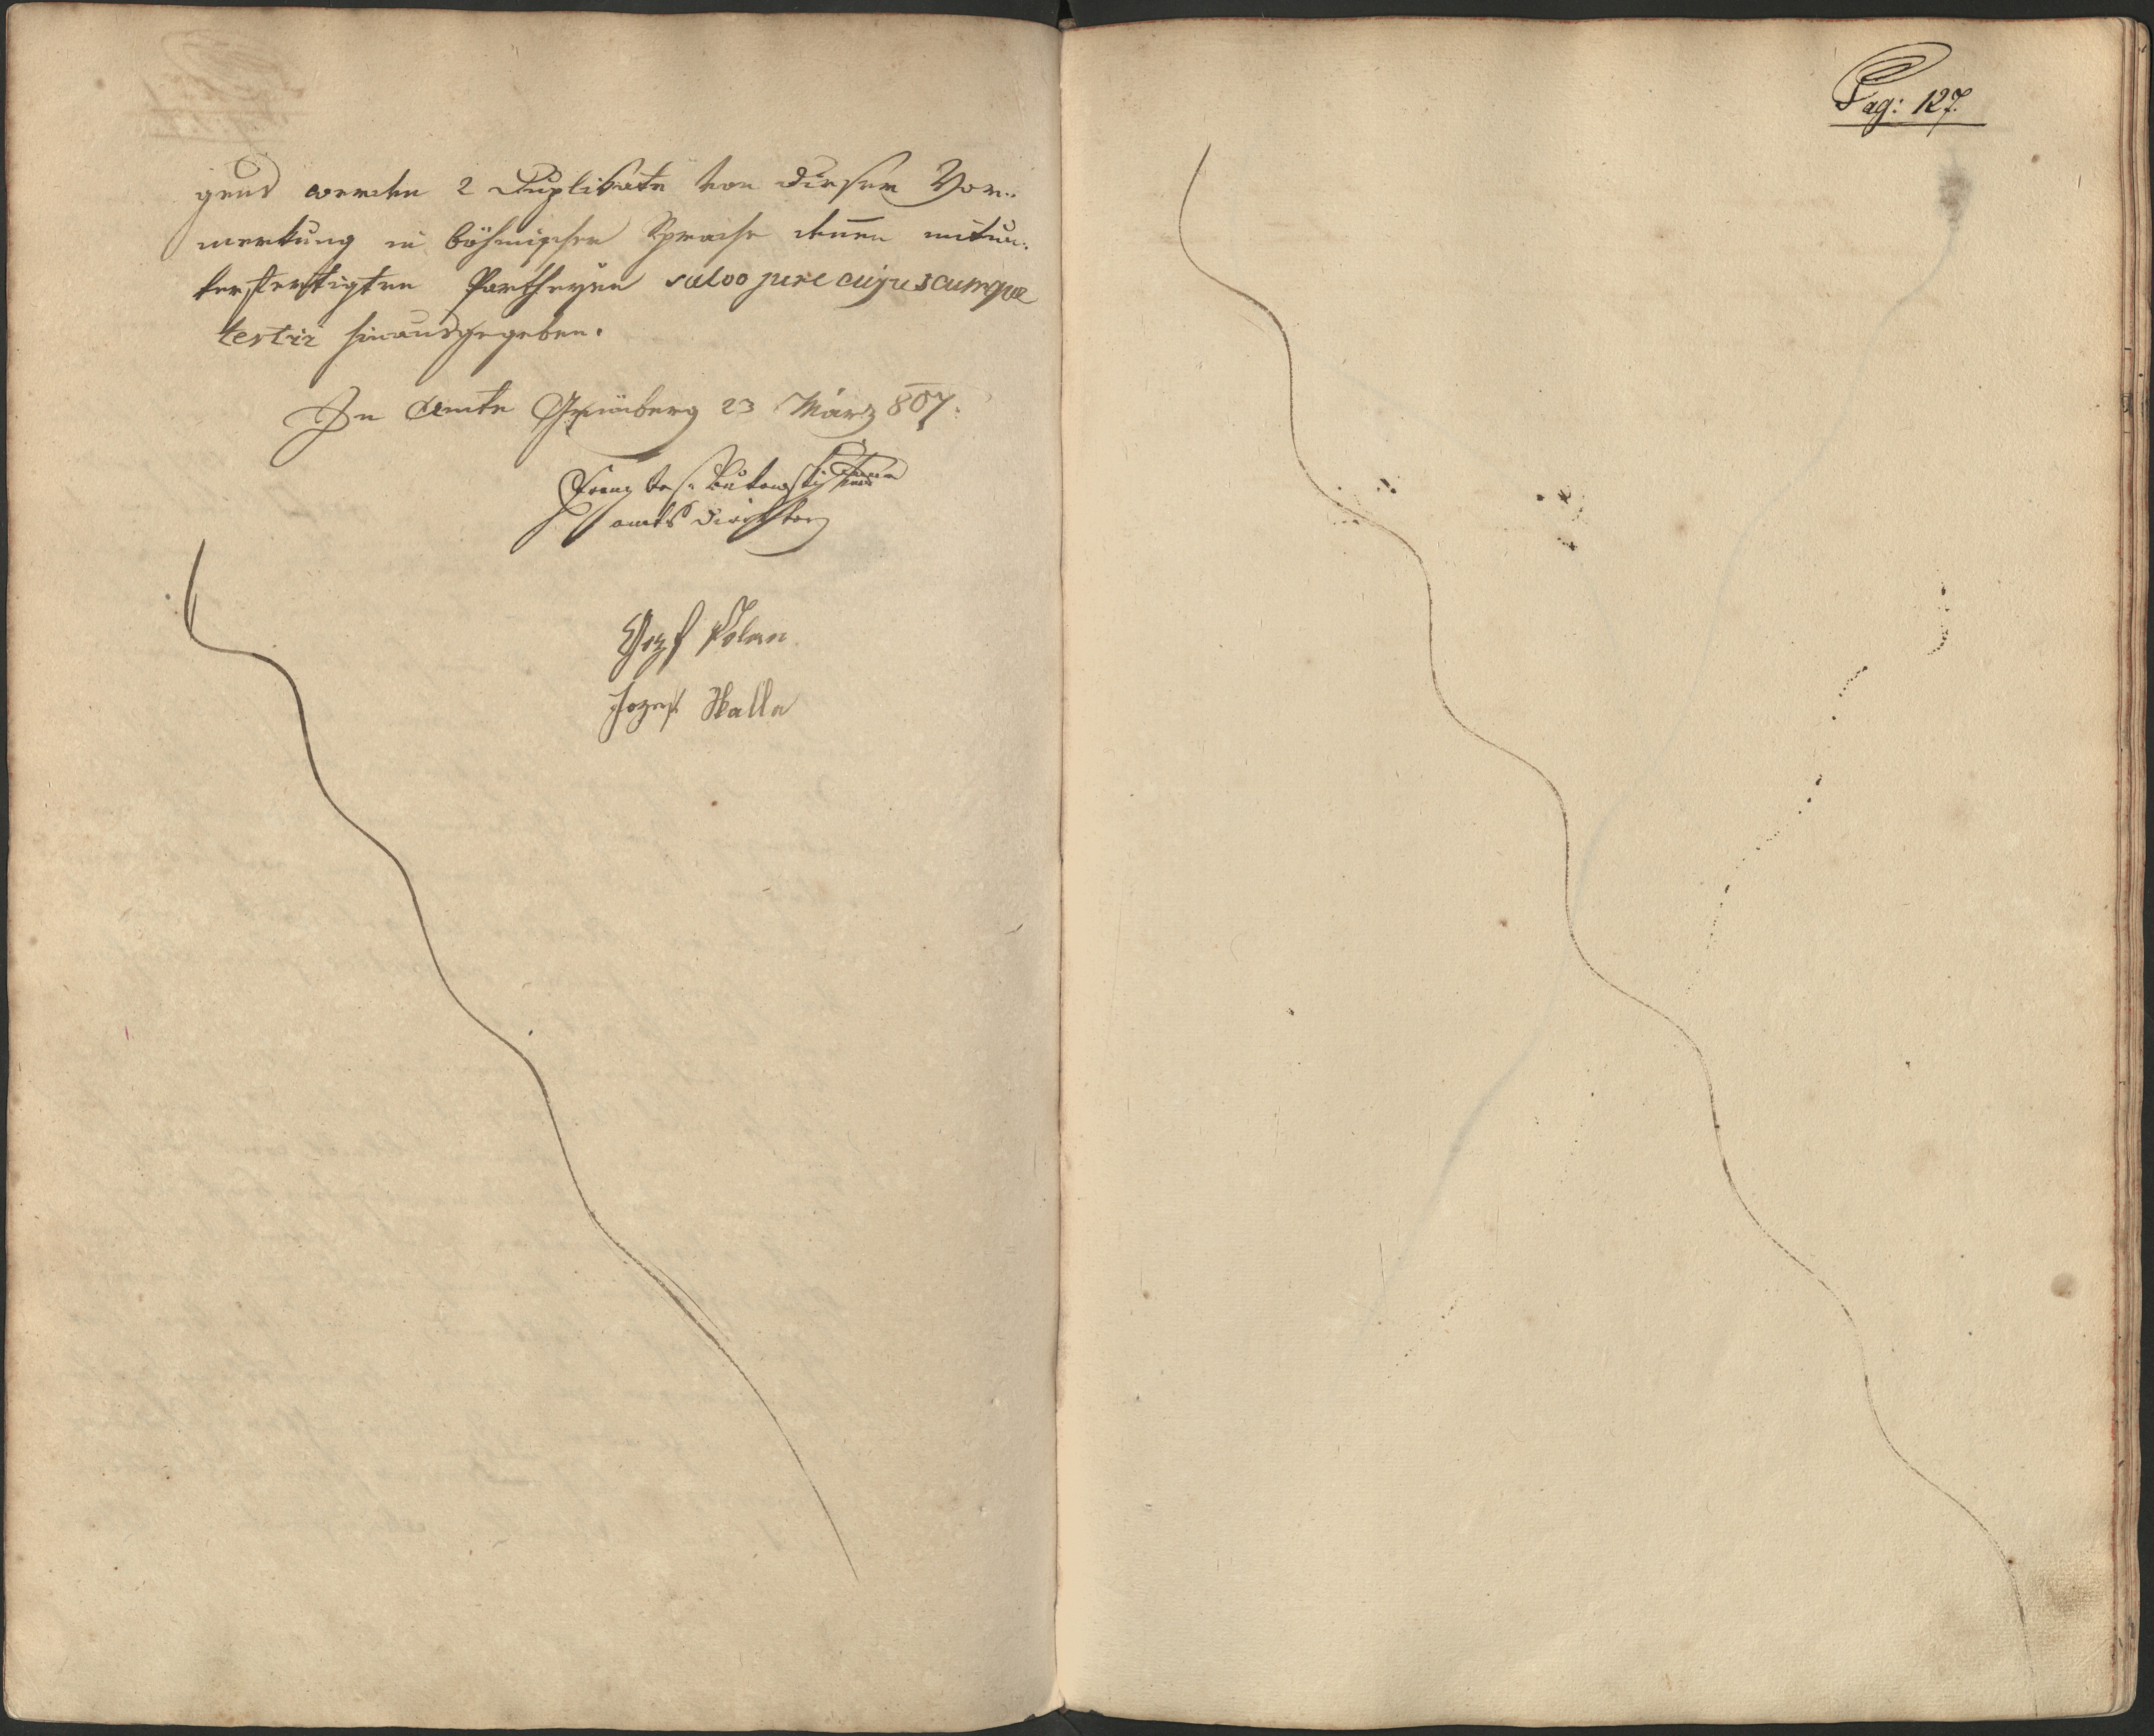 gens werden 2 Duplikate von dieser Vor:
merkung in böhmischer Sprache denen mitun:
terfertigten Partheyen salvo jure cujuscumque
tertii hinausgegeben.
In Amte Grünberg 23 März 807.
Franz
amts Direktor
Josef Polan
Jozef Halla
Pag: 127.